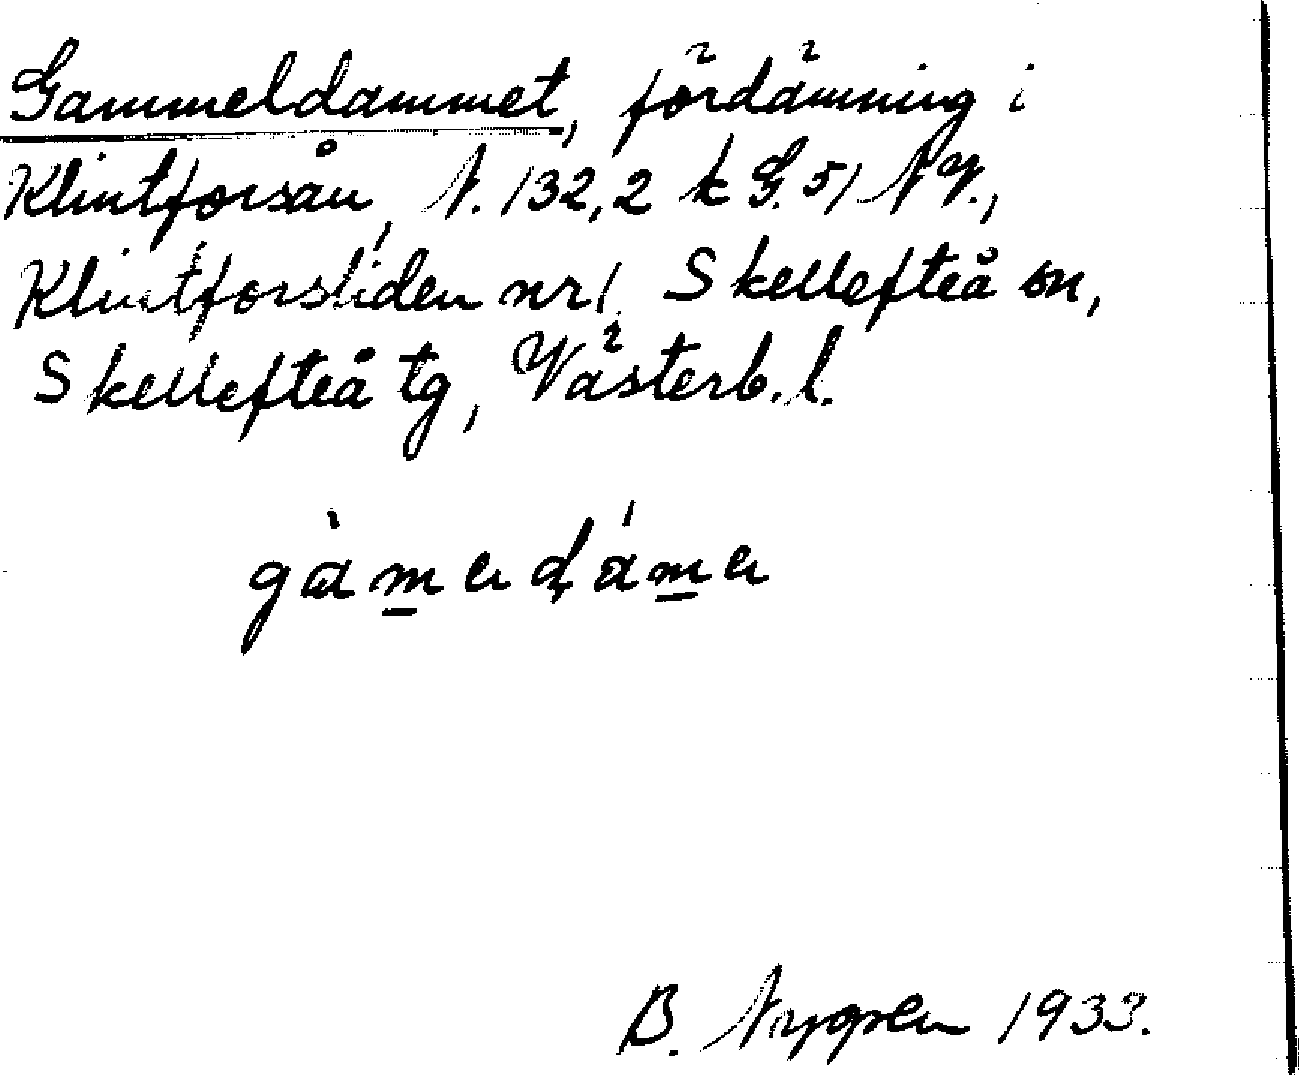 Gammeldammet, fördämning i
Klintforsån, N. 132,2 k G. 51 NV.,
Klintforsliden nr 1, Skellefteå sn,
Skellefteå tg, Västerb. l.
B. Nygren 1933.